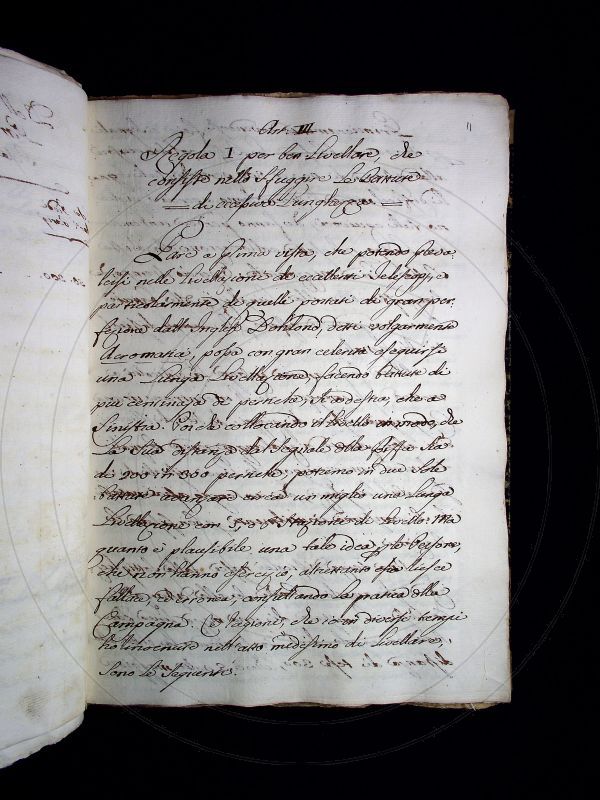 11
Art. III
Regola I per ben Livellare, che
consiste nello sfuggire le Battute
di eccessiva lunghezza
Pare a prima vista, che potendo preva-
lersi nelle Livellazioni de eccellenti Telescopj, e
particolarmente di quelli portati di gran per-
fezione dall' Inglese Dollond, detti volgarmente
Acromatici, possa con gran celerità eseguirsi
una Lunga Livellazione, facendo battute di
più centinaja di pertiche, si a destra, che a
Sinistra. Poiche collocando il Livello in modo, che
La Sua distanza dal Segnale dalla stessa sia
di 200 in 300 pertiche, potremo in due Sole
battute
un miglio una Lunga
Livellazione con Stazione di Livello. Ma
quanto è plausibile una tale idea per le Persone,
che non hanno esercizio, altrettanto essa riesce
fallace, ed erronea, consultando la pratica della
Campagna. Le ragioni, che io in diversi tempi
ho incontrate nell' atto medesimo di Livellare,
Sono le Seguenti.